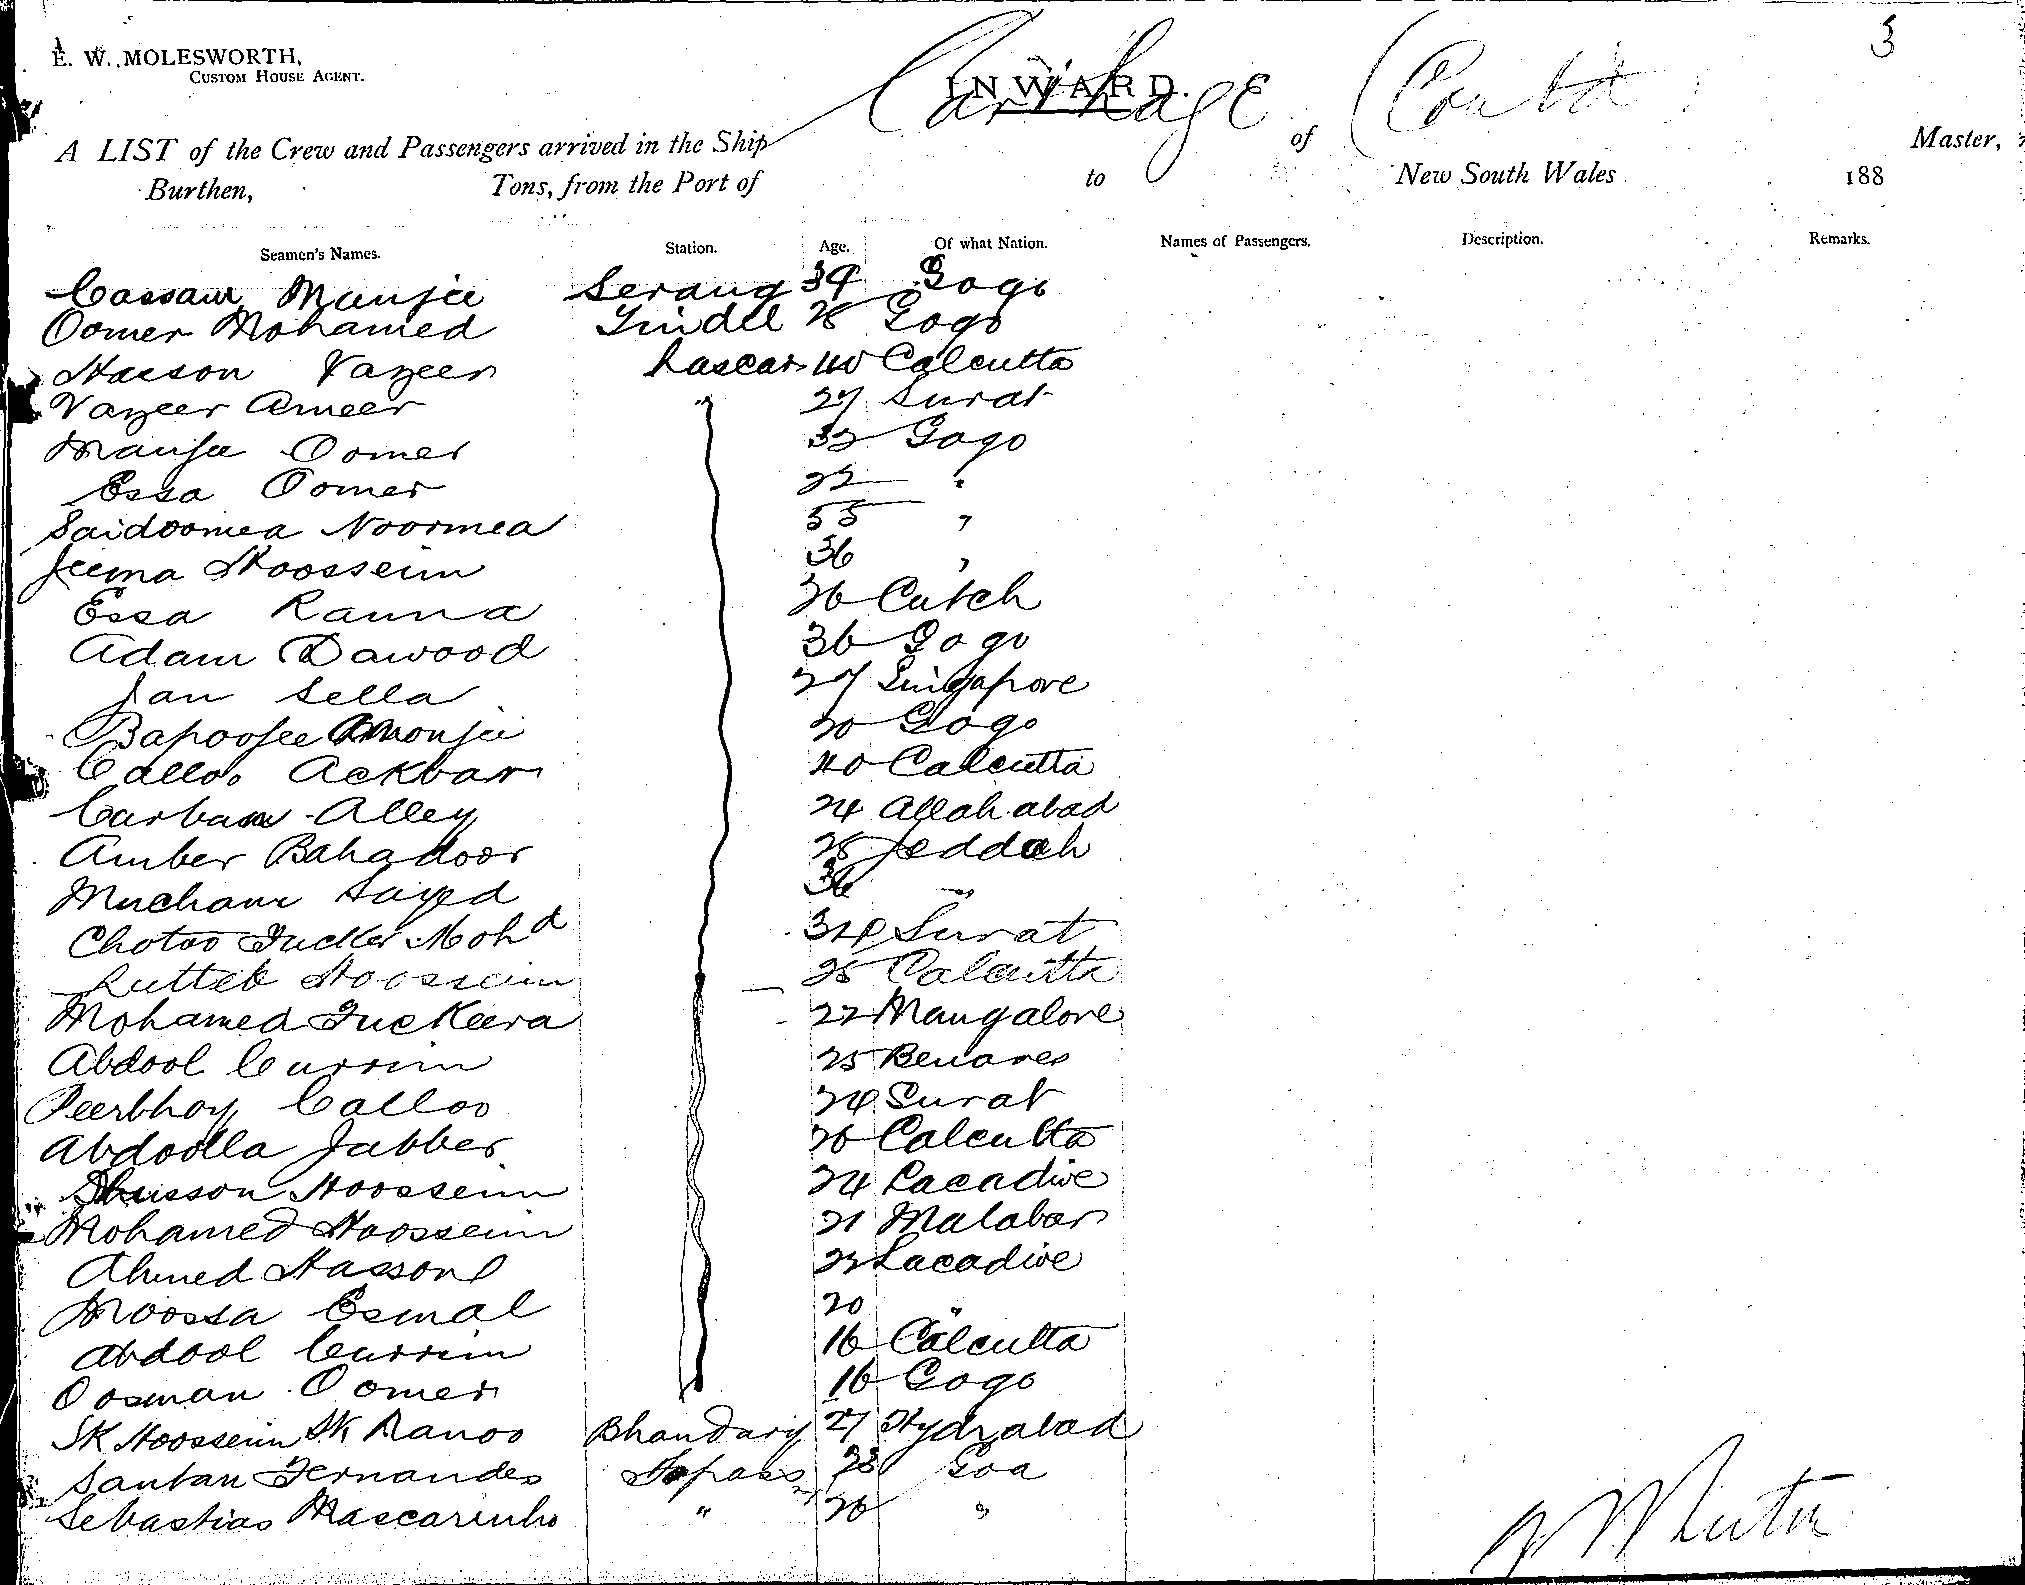 3
E. W. MOLESWORTH,
CUSTOM HOUSE AGENT.
INWARD.
Carthage (Contd
A LIST of the Crew and Passengers arrived in the Ship of Master,
Burthen, Tons, from the Port of to New South Wales 188
Seamen's Names. Station. Age. Of what Nation. Names of Passengers. Description. Remarks.
Cassam Munjee Serang 39 Gogo
Oomer Mohamed Tindel 28 Gogo
Hasson Vazeer Lascar 40 Calcutta
Vazeer Ameer " 27 Surat
Manjee Oomer 32 Gogo
Essa Oomer 22 "
Saidoomea Noormea 55 "
Jeema Hoossein 36 "
Essa Ranna 26 Cutch
Adam Dawood 36 Gogo
Jan Sella 27 Singapore
Bapoojee Monjee 20 Gogo
Calloo Ackbar 40 Calcutta
Alley 24 Allahabad
Amber Bahadoor 28 Jeddah
Mucham Sayed 36 "
Chotoo Tucker Mohd 34 Surat
Hoossein 25 Calcutta
Mohamed Tuckeera 22 Mangalore
Abdool Currim 25 Benares
Peerbhoy Calloo 24 Surat
Abdoolla Jabber 26 Calcutta
Hoossein 24 Lacadive
Mohamed Hoossein 21 Malabar
Ahmed Hasson 22 Lacadive
Moossa Esmal 20 "
Abdool Currim 16 Calcutta
Oosman Oomer 16 Gogo
SK Hoossein SK Ranoo Bhandary 27 Hydrabad
Santan Fernandes Topass 28 Goa
Sebastiao Mascarinho " 26 "